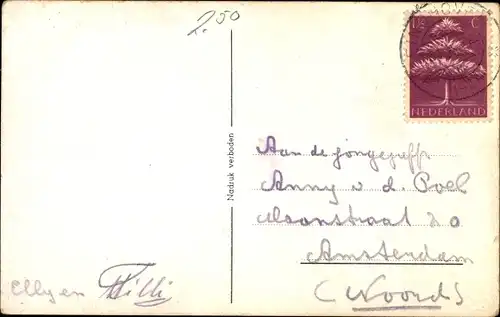 2.50
1½ C
NEDERLAND
Nadruk verboden
Aan de jongejuffr
Anny v. d. Poel
20
Amsterdam
(Noord)
Elly en Willi